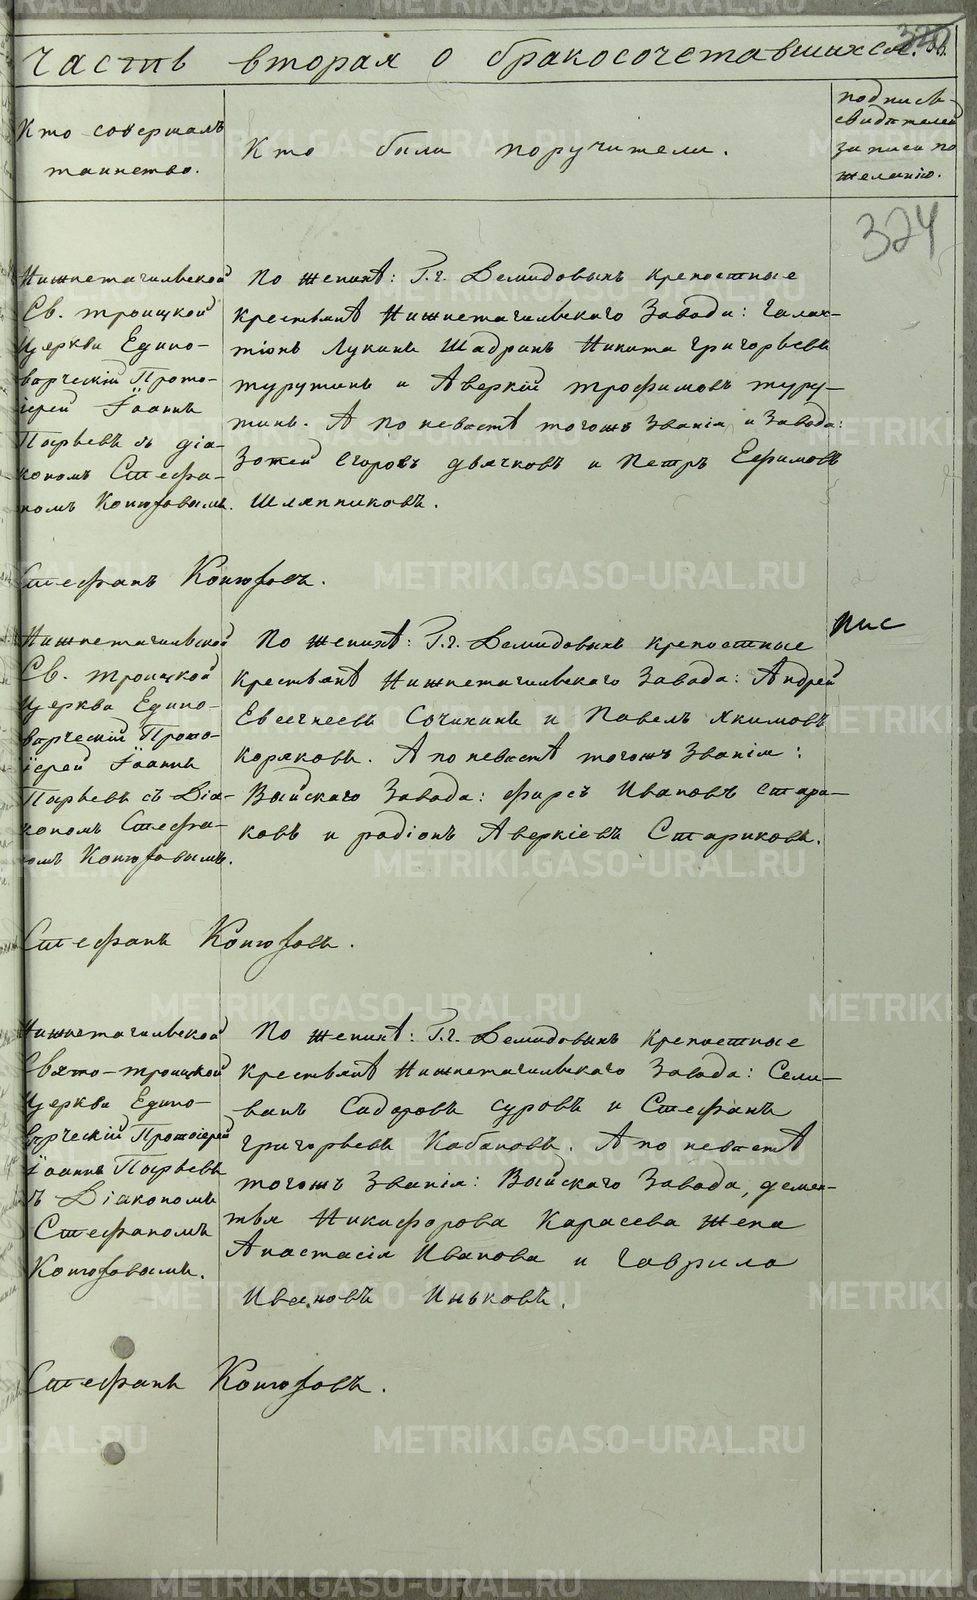 Часть вторая о бракосочетавшихся.
Кто совершалъ
таинство.
Кто были поручители.
подпись
свидѣтелей
записи по
желанію.
324
Нижнетагильской
Св. Троицкой
Церкви Едино-
вѣрческій Прото-
іерей Іоаннъ
Пырьевъ съ діа-
кономъ Стефа-
номъ Конюховымъ.
По женихѣ: Г.г. Демидовыхъ крепостные
крестьянѣ Нижнетагильскаго Завода: Галак-
тіонъ Лукинъ Шадринъ Никита Григорьевъ
турутинъ и Аверкій трофимовъ туру-
тинъ. А по невѣстѣ тогожъ Званія и Завода:
Зотей Егоровъ дьячковъ и Петръ Ефимовъ
Шляпниковъ.
Стефанъ Конюховъ.
Нижнетагильской
Св. Троицкой
Церкви Едино-
вѣрческій Прото-
іерей Іоаннъ
Пырьевъ съ Діа-
кономъ Стефа-
номъ Конюховымъ.
По женихѣ: Г.г. Демидовыхъ крепостные
крестьянѣ Нижнетагильскаго Завода: Андрей
Евсегнеевъ Сочихинъ и Павелъ Якимовъ
коряковъ. А по невѣстѣ тогожъ Званія:
Выйскаго Завода: фирсъ Ивановъ стари-
ковъ и радіонъ Аверкіевъ Стариковъ.
Стефанъ Конюховъ.
Нижнетагильской
Свято-троицкой
Церкви Едино-
вѣрческій Протоіерей
Іоаннъ Пырьевъ
съ Діакономъ
Стефаномъ
Конюховымъ.
По женихѣ: Г.г. Демидовыхъ крепостные
крестьянѣ Нижнетагильскаго Завода: Сели-
ванъ Сидоровъ суровъ и Стефанъ
григорьевъ Кабановъ. А по невѣстѣ
тогожъ Званія: Выйскаго Завода, демен-
тья Никифорова Карасева жена
Анастасія Иванова и Гаврило
Ивановъ Иньковъ.
Стефанъ Конюховъ.
METRIKI.GASO-URAL.RU